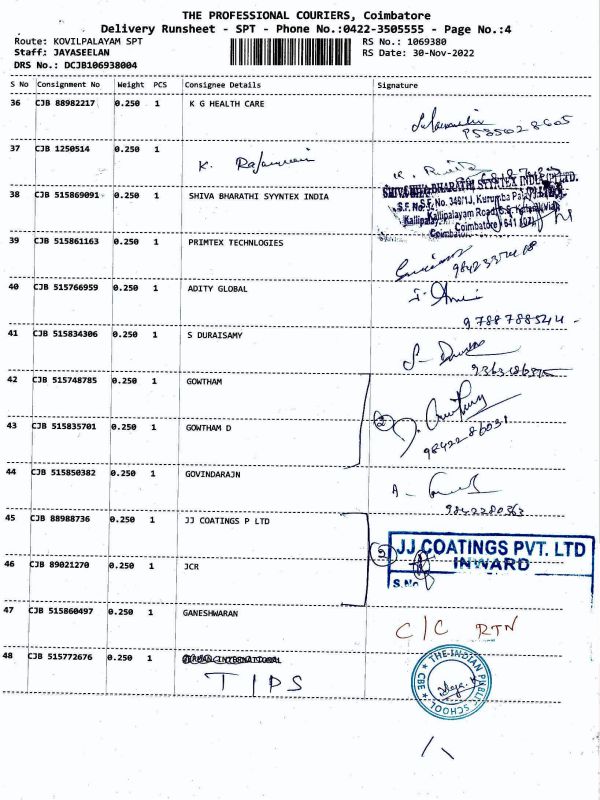 THE PROFESSIONAL COURIERS, Coimbatore
Delivery Runsheet - SPT - Phone No.:0422-3505555 - Page No.:4
Route: KOVILPALAYAM SPT RS No.: 1069380
Staff: JAYASEELAN RS Date: 30-Nov-2022
DRS No.: DCJB106938004
S No Consignment No Weight PCS Consignee Details Signature
36 CJB 88982217 0.250 1 K G HEALTH CARE
37 CJB 1250514 0.250 1
K.
38 CJB 515869091 0.250 1 SHIVA BHARATHI SYYNTEX INDIA
39 CJB 515861163 0.250 1 PRIMTEX TECHNLOGIES
40 CJB 515766959 0.250 1 ADITY GLOBAL
9788788544
41 CJB 515834306 0.250 1 S DURAISAMY
42 CJB 515748785 0.250 1 GOWTHAM
43 CJB 515835701 0.250 1 GOWTHAM D
2
9842286031
44 CJB 515850382 0.250 1 GOVINDARAJN
9842280363
45 CJB 88988736 0.250 1 JJ COATINGS P LTD
46 CJB 89021270 0.250 1 JCR
JJ COATINGS PVT. LTD
INWARD
S.No
47 CJB 515860497 0.250 1 GANESHWARAN
C/C RTN
48 CJB 515772676 0.250 1
TIPS
THE INDIAN PUBLIC SCHOOL
CBE